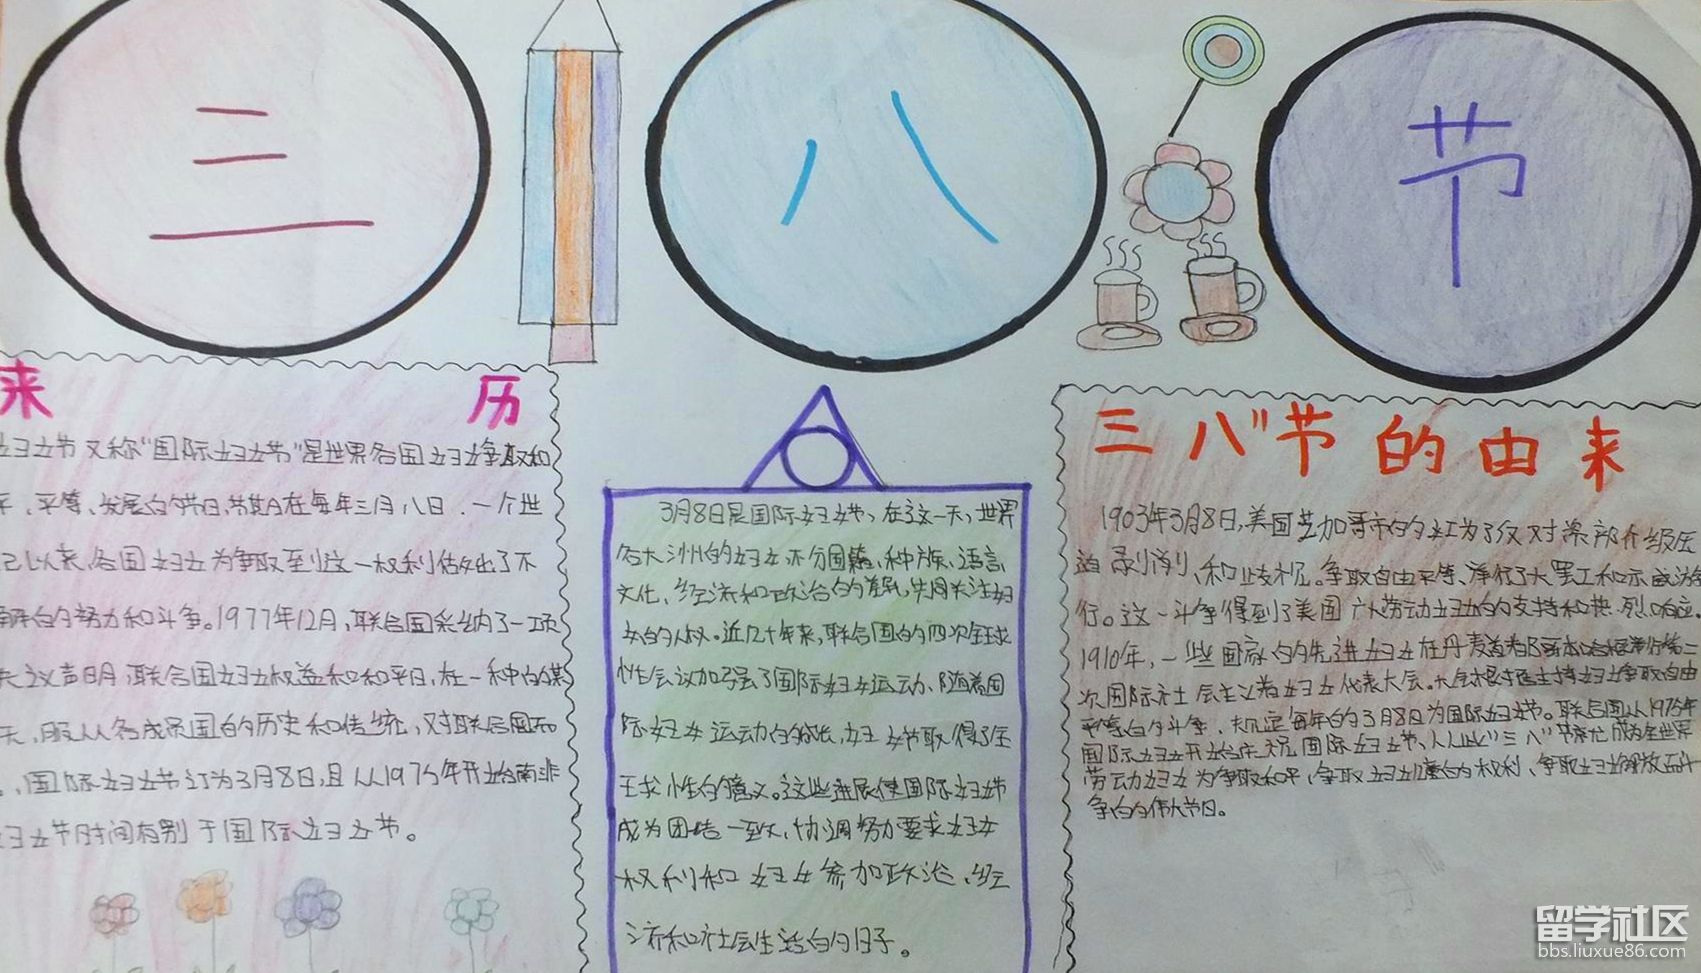 三 八 节
来 历
妇女节又称“国际妇女节”是世界各国妇女争取和
平、平等、发展的节日,节期在每年三月八日.一个世
纪以来,各国妇女为争取到这一权利做出了不
懈的努力和斗争。1977年12月,联合国采纳了一项
决议声明,联合国妇女权益和和平日,在一种的某
天,服从各成员国的历史和传统,对联合国而
,国际妇女节订为3月8日,且从1975年开始南非
妇女节时间有别于国际妇女节。
3月8日是国际妇女节,在这一天,世界
各大洲的妇女不分国籍、种族、语言、
文化、经济和政治的差异,共同关注妇
女的人权。近几十年来,联合国的四次全球
性会议加强了国际妇女运动、随着国
际妇女运动的成长,妇女节取得了全
球性的意义。这些进展使国际妇女节
成为团结一致、协调努力要求妇女
权利和妇女参加政治、经
济和社会生活的日子。
三八”节的由来
1903年3月8日,美国芝加哥市的女工为了反对资产阶级压
迫、剥削、和歧视。争取自由平等、举行了大罢工和示威游
行。这一斗争得到了美国广大劳动妇女的支持和热烈响应。
1910年,一些国家的先进妇女在丹麦首都哥本哈根举行第二
次国际社会主义者妇女代表大会。大会根据主持妇女争取自由
平等的斗争,决定每年的3月8日为国际妇女节。联合国从1975年
国际妇女开始庆祝国际妇女节、从此“三八”节成为全世界
劳动妇女为争取和平、争取妇女儿童的权利、争取妇女解放而斗
争的伟大节日。
留学社区
bbs.liuxue86.com